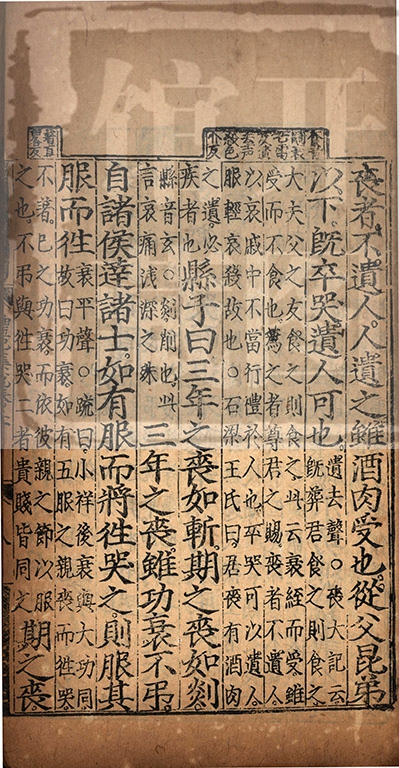 喪者不遺人人遺之雖酒肉受也從父昆弟
以下既卒哭遺人可也
遺去聲○喪大記云
既葬君食之則食之
大夫父之友食之則食之此云衰絰而受雖
受而不食也薦之者尊君之賜喪者不遺人
以哀戚中不當行禮於人也卒哭可以遺人
服輕哀殺故也○石梁王氏曰居喪有酒肉
之遺必
疾者也
縣子曰三年之喪如斬期之喪如剡
縣音玄○剡削也此
言哀痛淺深之殊
三年之喪雖功衰不弔
自諸侯達諸士如有服而將徃哭之則服其
服而徃
衰平聲○疏曰小祥後衰與大功同
故曰功衰如有五服之親喪而徃哭
不著己之功衰而依彼親之節以服
之也不弔與徃哭二者貴賤皆同之
期之喪
殺色
著直
畧反